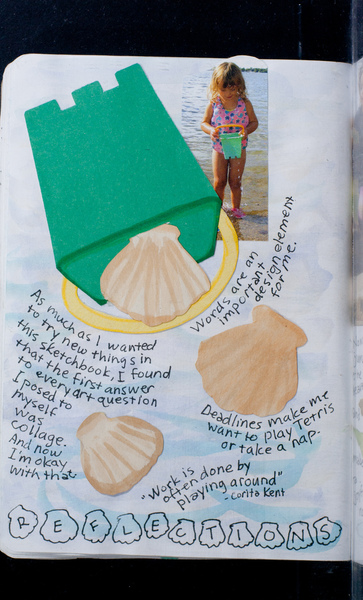 Words are an
important
design element
for me.
As much as I wanted
to try new things in
this sketchbook, I found
that the first answer
to every art question
I posed to
myself
was
collage.
And now
I'm okay
with that
Deadlines make me
want to play Tetris
or take a nap.
"Work is
often done by
playing around"
- Corita Kent
REFLECTIONS